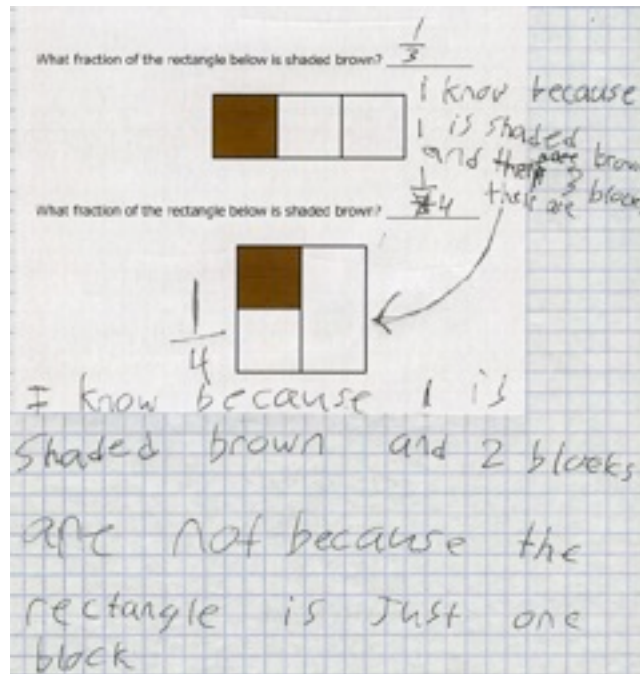 What fraction of the rectangle below is shaded brown? 1/3
i know because
1 is shaded
and brown
there are 3 blocks
What fraction of the rectangle below is shaded brown? 1/4
1/4
I know because 1 is
shaded brown and 2 blocks
are not because the
rectangle is Just one
block